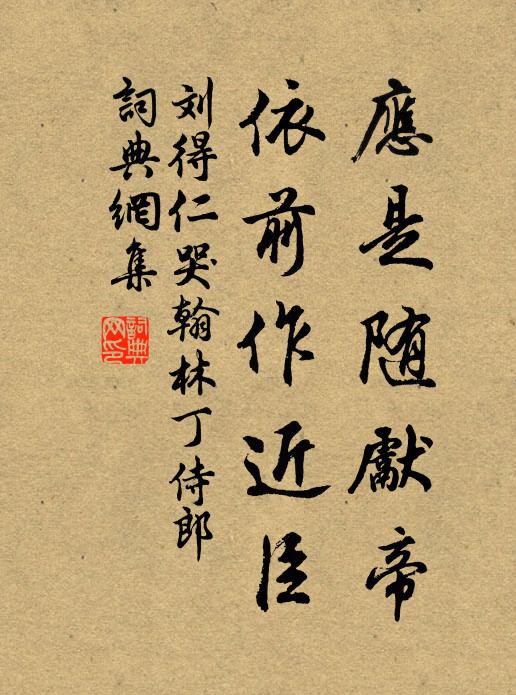 應是随獻帝
依前作近臣
刘得仁哭翰林丁侍郎
詞典網集
詞典网印